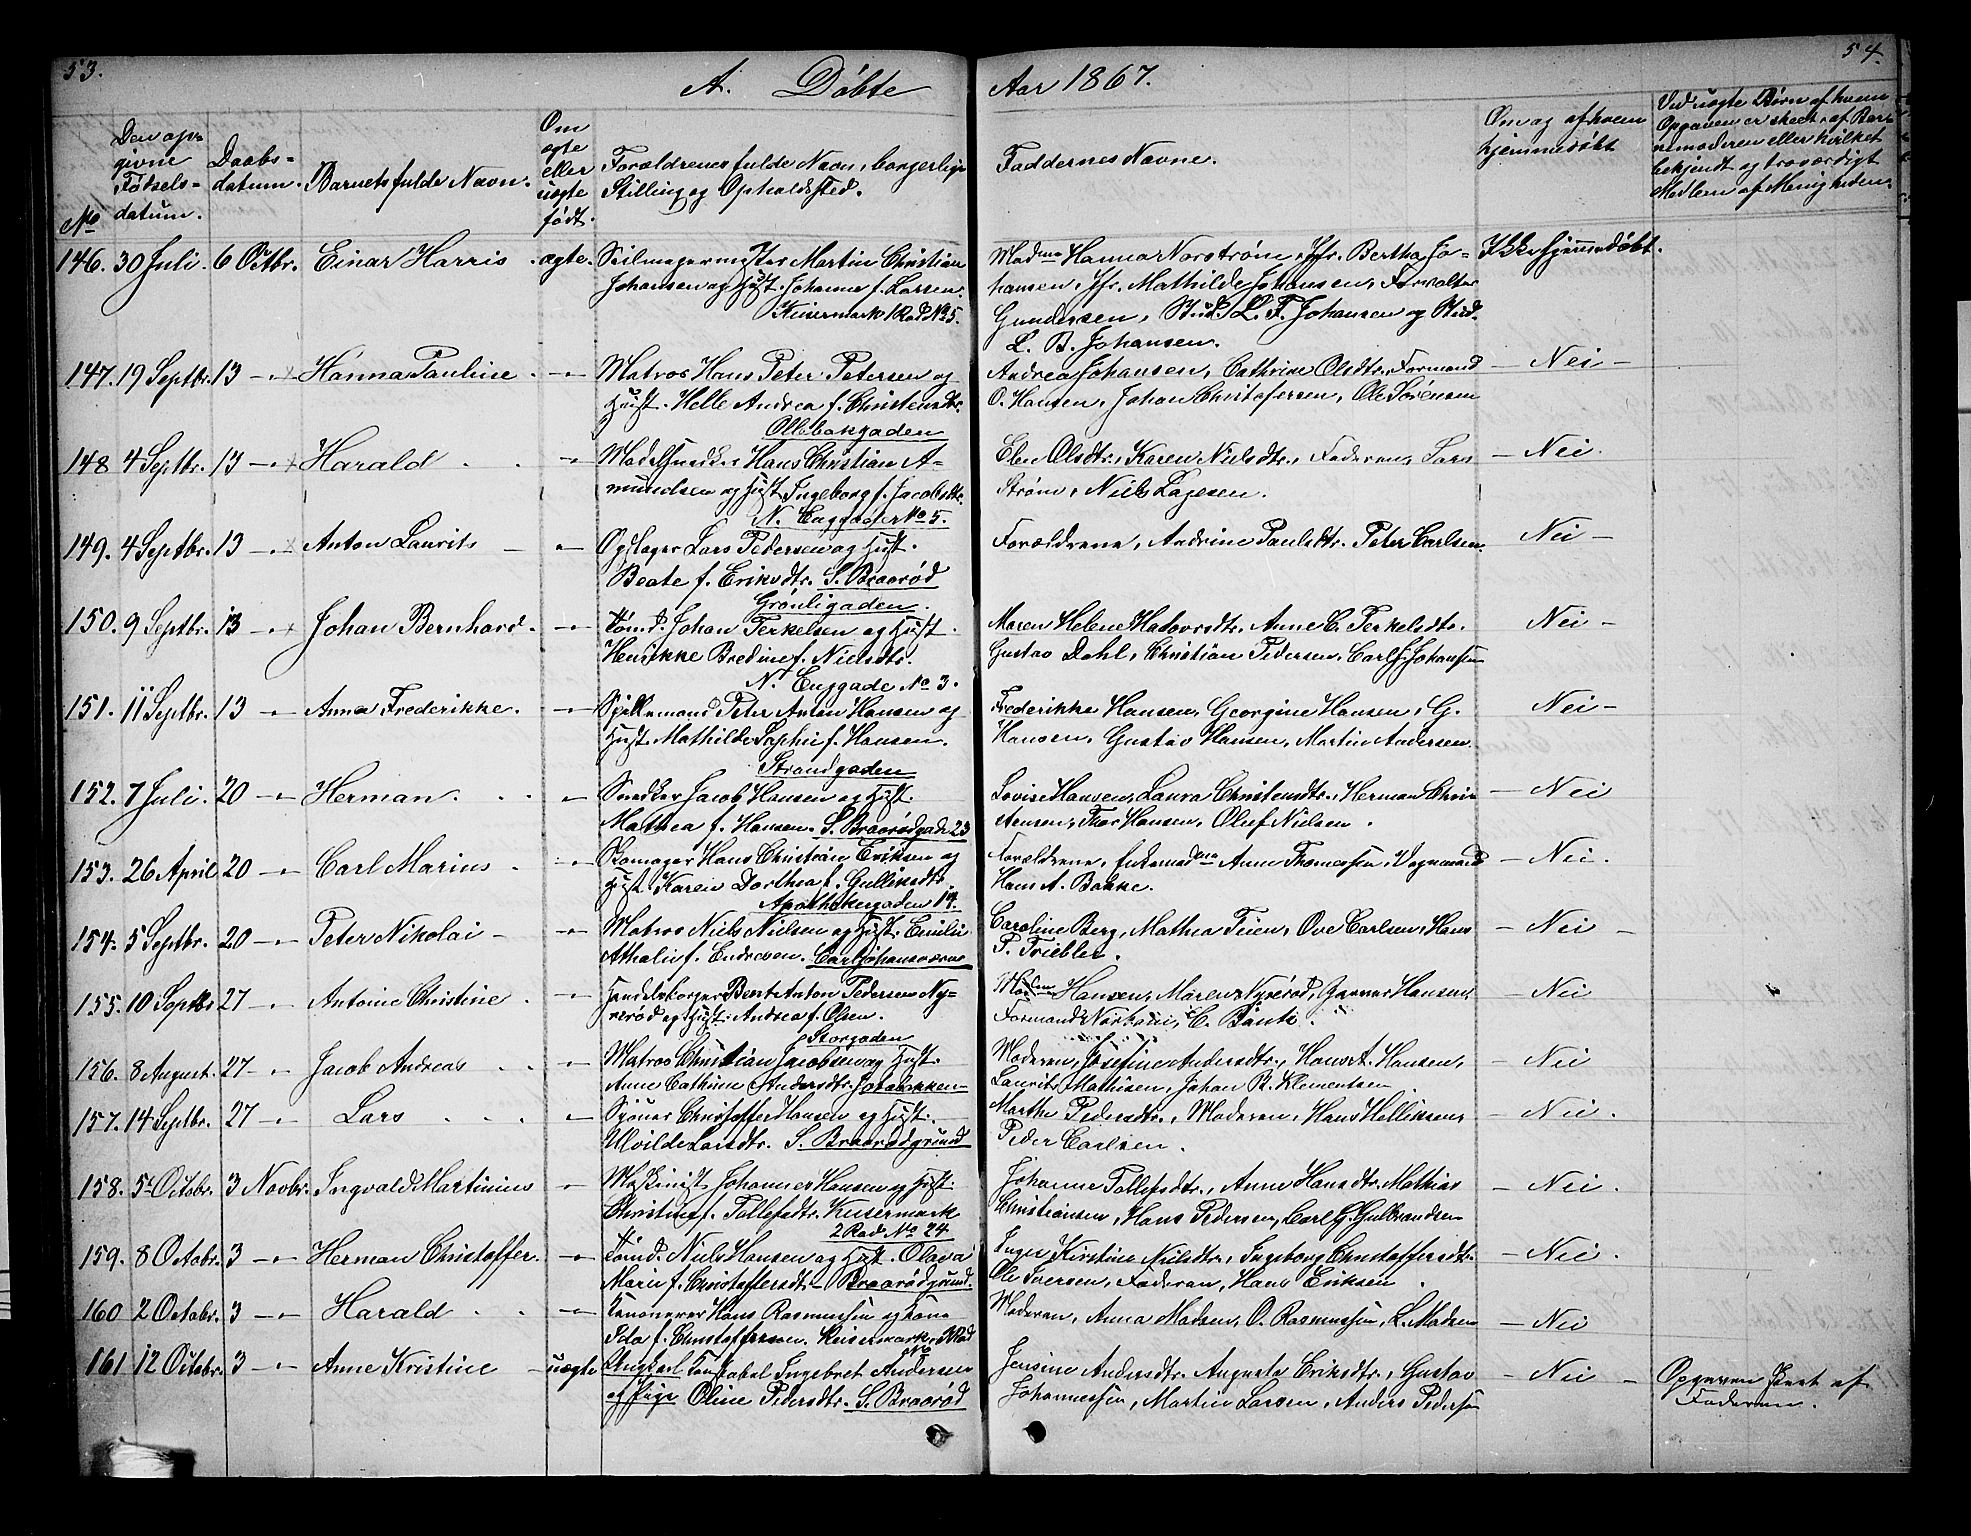 53.
A. Döbte
Den opgivne Fødsels-datum.
Daabs-datum.
Barnets fulde Navn.
Om ægte eller uægte født.
Forældrenes fulde Navn, borgerlige
Stilling og Opholdssted.
No
146. 30 Juli. 6 Octbr. Einar Harris . ægte. Seilmagermester Martin Christian
Johansen og Hust. Johanne f. Larsen.
Keisermark 1 Rad No 5.
147. 19 Septbr. 13 -"- Hanna Pauline . -"- Matros Hans Peter Petersen og
Hust. Helle Andrea f. Christensdtr.
Ollebakgaden
148 4 Septbr. 13 -"- Harald . . -"- Modelsnedker Hans Christian A-
mundsen og Hust Ingeborg f. Jacobsdtr.
N. Enggade No 5.
149. 4 Septbr. 13 -"- Anton Laurits - -"- Opslager Lars Pedersen og Hust.
Beate f. Eriksdtr. S. Braarød
Grønligaden.
150. 9 Septbr. 13 -"- Johan Bernhard. -"- Tømd. Johan Terkelsen og Hust.
Henrikke Bredine f. Nielsdtr.
N. Enggade No 3.
151. 11 Septbr. 13 -"- Anna Frederikke. -"- Spillemand Peter Anton Hansen og
Hust. Mathilde Sophie f. Hansen.
Strandgaden
152. 7 Juli. 20 -"- Herman. . . -"- Snedker Jacob Hansen og Hust.
Mathea f. Hansen. S. Braarødgade 23
153. 26 April 20 -"- Carl Marius . -"- Skomager Hans Christian Eriksen og
Hust Karen Dorthea f. Gulliksdtr.
Apothekergaden 14.
154. 5 Septbr. 20 -"- Peter Nikolai - -"- Matros Niels Nielsen og Hust. Emilie
Athalie f. Endresen. Carljohansværns
155. 10 Septbr 27 -"- Antoine Christine . -"- Handelsborger Bent Anton Pedersen Ny-
rerød og Hust. Andrea f. Olsen.
Storgaden
156. 8 August. 27 -"- Jacob Andreas . . -"- Matros Christian Jacobsen og Hust.
Anne Cathrine Andersdtr.
157. 14 Septbr. 27 -"- Lars . . . -"- Christoffer Hansen og Hust.
Alvilde Larsdtr. S. Braarødgrund
158. 5 Octobr. 3 Novbr. Ingvald Martinius -"- Maskinist Johannes Hansen og Hust.
Christine f. Tollefsdtr. Keisermark
2 Rad No 24
159. 8 Octobr. 3 -"- Herman Christoffer. -"- Tømd. Niels Hansen og Hust. Olava
Marie f. Christoffersdtr - Braarødgrund.
160 2 Octobr. 3 -"- Harald . . -"- Kanonerer Hans Rasmussen og Kone
Ida f. Christoffersen. Keisermark,
161 12 Octobr. 3 -"- Anne Kristine - uægte Ungkarl Konstabel Ingebret Andersen
og Pige Oline Pedersdtr. S. Braarød
54.
Aar 1867.
Faddernes Navne.
Om og af hvem
hjemmedøbt
Ved uægte Børn af hvem
Opgaven er skeet, af Bar-
nemoderen eller hvilket
bekjendt og troværdigt
Medlem af Menigheden.
Madme Hanna Norstrøm, Jfr. Bertha Jo- Ikke hjemmedøbt.
hansen, Jfr. Mathilde Johansen, Forvalter
Gundersen, Stud. L. F. Johansen og Stud.
L. B. Johansen.
Andrea Johansen, Cathrine Olsdtr., Formand - Nei -
O. Hansen, Johan Christofersen, Ole Sørensen
Olsdtr., Karen Nielsdtr., Faderen, Lars - Nei.
Strøm, Niels Lagesen.
Forældrene, Andrine Paulsdtr. Peter Carlsen. Nei -
Maren Helene Anne C. Terkelsdtr. Nei -
Gustav Dahl, Christian Pedersen, Carl J. Johansen
Frederikke Hansen, Georgine Hansen, G. Nei -
Hansen, Gustav Hansen, Martin Andersen.
Lovise Hansen, Laura Christensdtr., Herman Chris- - Nei
tensen, Thor Hansen, Oluf Nielsen.
Forældrene, Enkemadme Anne Thomassen, Vognmand - Nei.
Hans A. Bakke.
Caroline Berg, Mathea Teien, Ove Carlsen, Hans - Nei -
P. Triebler.
Madme Hansen, Maren Nyrerød, Gunner Hansen, - Nei
Formand C. Bank.
Moderen, Josefine Andersdtr., Hans A. Hansen, - Nei
Laurits Mathisen, Johan R. Klementsen
Marthe Pedersdtr., Moderen, Hans Helliksen, - Nei.
Peder Carlsen.
Johanne Tollefsdtr., Anne Hansdtr. Mathias - Nei.
Christiansen, Hans Pedersen, Carl G. Gulbrandsen
Inger Kirstine Nielsdtr., Ingeborg Christoffersdtr. - Nei.
Ole Iversen, Faderen, Hans Eriksen.
Moderen, Anna Madsen, O. Rasmussen, L. Madsen - Nei
Jensine Andersdtr. Augusta Eriksdtr., Gustav - Nei - Opgaven skeet af
Johannessen, Martin Larsen, Anders Pedersen Faderen.